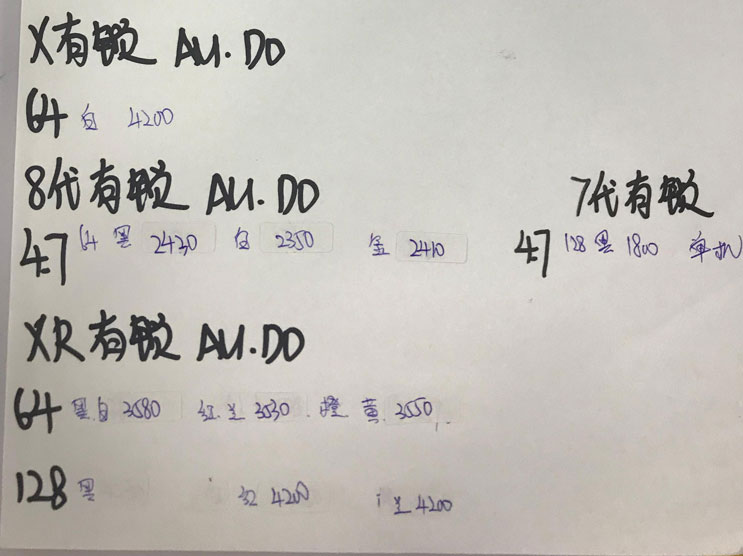 X有锁 AU.DO
64 白 4200
8代有锁 AU.DO
4.7 64 黑 2430 白 2350 金 2410
7代有锁
4.7 128 黑 1800 单机
XR有锁 AU.DO
64 黑白 3580 红兰 3530 橙 黄 3550
128 黑 红 4200 兰 4200